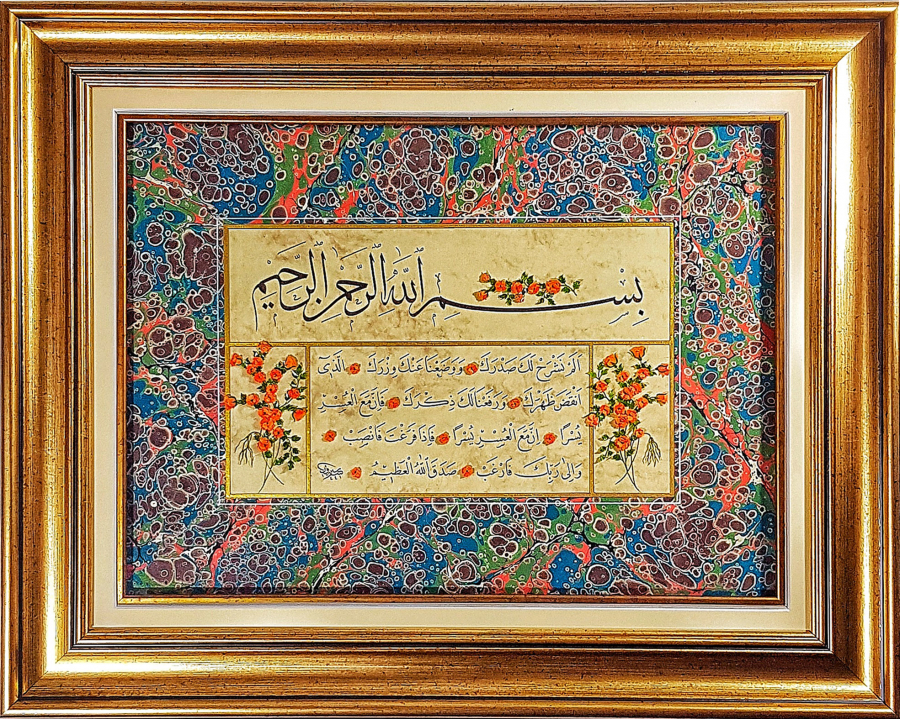 بِسْمِ اللّٰهِ الرَّحْمٰنِ الرَّحِيمِ
اَلَمْ نَشْرَحْ لَكَ صَدْرَكَ وَوَضَعْنَا عَنْكَ وِزْرَكَ اَلَّذٖى
اَنْقَضَ ظَهْرَكَ وَرَفَعْنَا لَكَ ذِكْرَكَ فَاِنَّ مَعَ الْعُسْرِ
يُسْرًا اِنَّ مَعَ الْعُسْرِ يُسْرًا فَاِذَا فَرَغْتَ فَانْصَبْ
وَاِلٰى رَبِّكَ فَارْغَبْ صَدَقَ اللّٰهُ الْعَظِيمُ